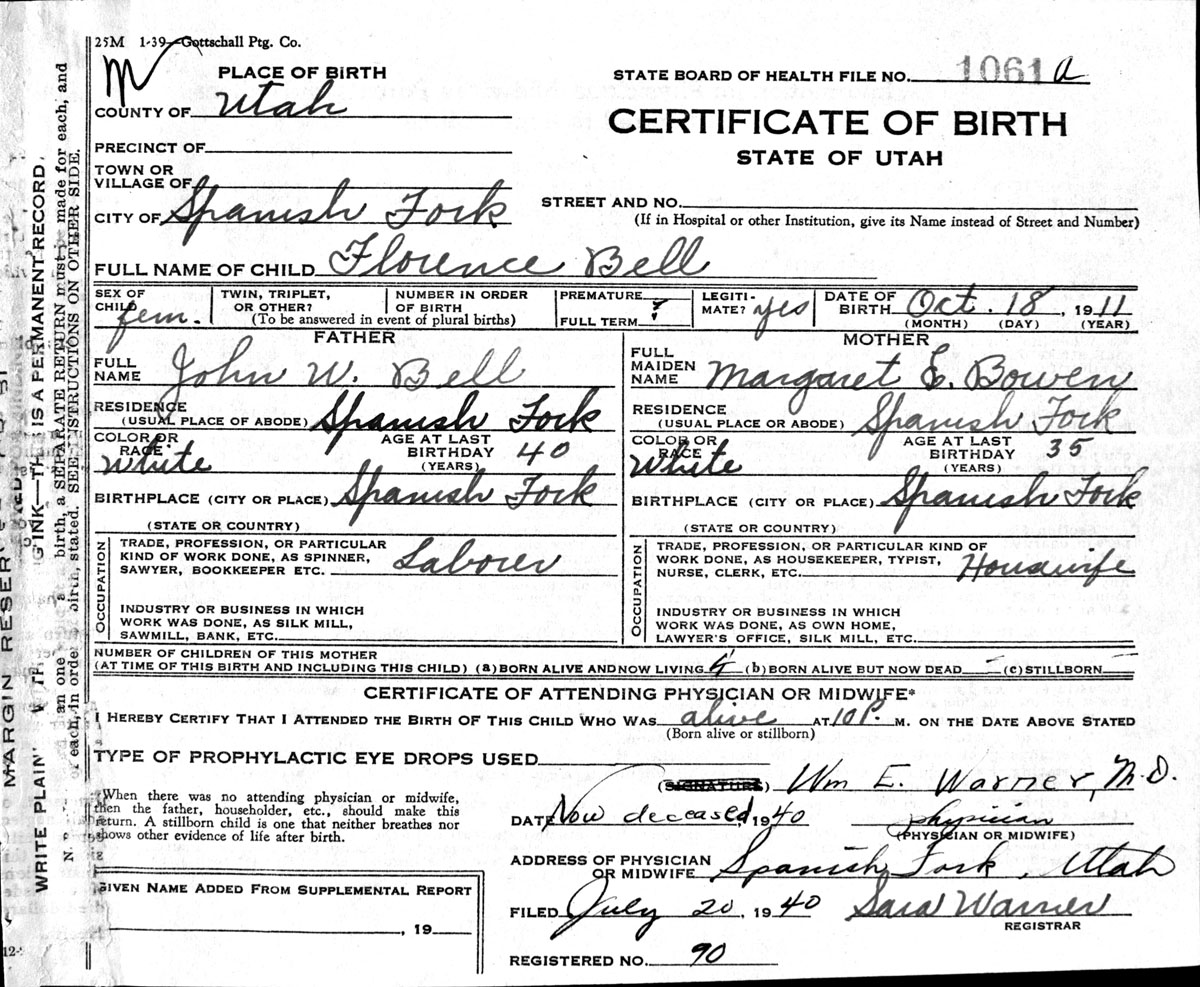 25M 1-39—Gottschall Ptg. Co.
M
PLACE OF BIRTH
COUNTY OF Utah
PRECINCT OF
TOWN OR
VILLAGE OF
CITY OF Spanish Fork
STATE BOARD OF HEALTH FILE NO. 1061 a
CERTIFICATE OF BIRTH
STATE OF UTAH
STREET AND NO.
(If in Hospital or other Institution, give its Name instead of Street and Number)
FULL NAME OF CHILD Florence Bell
SEX OF
CHILD fem.
TWIN, TRIPLET,
OR OTHER?
NUMBER IN ORDER
OF BIRTH
(To be answered in event of plural births)
PREMATURE
FULL TERM ?
LEGITI-
MATE? yes
DATE OF
BIRTH Oct. 18, 1911
(MONTH) (DAY) (YEAR)
FATHER
FULL
NAME John W. Bell
RESIDENCE
(USUAL PLACE OF ABODE) Spanish Fork
COLOR OR
RACE White
AGE AT LAST
BIRTHDAY 40
(YEARS)
BIRTHPLACE (CITY OR PLACE) Spanish Fork
(STATE OR COUNTRY)
OCCUPATION
TRADE, PROFESSION, OR PARTICULAR
KIND OF WORK DONE, AS SPINNER,
SAWYER, BOOKKEEPER ETC. Laborer
INDUSTRY OR BUSINESS IN WHICH
WORK WAS DONE, AS SILK MILL,
SAWMILL, BANK, ETC.
MOTHER
FULL
MAIDEN
NAME Margaret E. Bowen
RESIDENCE
(USUAL PLACE OR ABODE) Spanish Fork
COLOR OR
RACE White
AGE AT LAST
BIRTHDAY 35
(YEARS)
BIRTHPLACE (CITY OR PLACE) Spanish Fork
(STATE OR COUNTRY)
OCCUPATION
TRADE, PROFESSION, OR PARTICULAR KIND OF
WORK DONE, AS HOUSEKEEPER, TYPIST,
NURSE, CLERK, ETC. Housewife
INDUSTRY OR BUSINESS IN WHICH
WORK WAS DONE, AS OWN HOME,
LAWYER'S OFFICE, SILK MILL, ETC.
NUMBER OF CHILDREN OF THIS MOTHER
(AT TIME OF THIS BIRTH AND INCLUDING THIS CHILD) (a) BORN ALIVE AND NOW LIVING 4 (b) BORN ALIVE BUT NOW DEAD — (c) STILLBORN —
CERTIFICATE OF ATTENDING PHYSICIAN OR MIDWIFE*
I HEREBY CERTIFY THAT I ATTENDED THE BIRTH OF THIS CHILD WHO WAS alive AT 10 P. M. ON THE DATE ABOVE STATED
(Born alive or stillborn)
TYPE OF PROPHYLACTIC EYE DROPS USED
*When there was no attending physician or midwife,
then the father, householder, etc., should make this
return. A stillborn child is one that neither breathes nor
shows other evidence of life after birth.
(SIGNATURE) Wm E. Warner, M.D.
DATE Now deceased, 1940 physician
(PHYSICIAN OR MIDWIFE)
ADDRESS OF PHYSICIAN
OR MIDWIFE Spanish Fork, Utah
FILED July 20, 1940 Sara Warner
REGISTRAR
REGISTERED NO. 90
GIVEN NAME ADDED FROM SUPPLEMENTAL REPORT
, 19
MARGIN RESERV
WRITE PLAIN
G INK—TH IS A PERMANENT RECORD.
an one birth, a SEPARATE RETURN must be made for each, and
each, in order birth, stated. SEE INSTRUCTIONS ON OTHER SIDE.